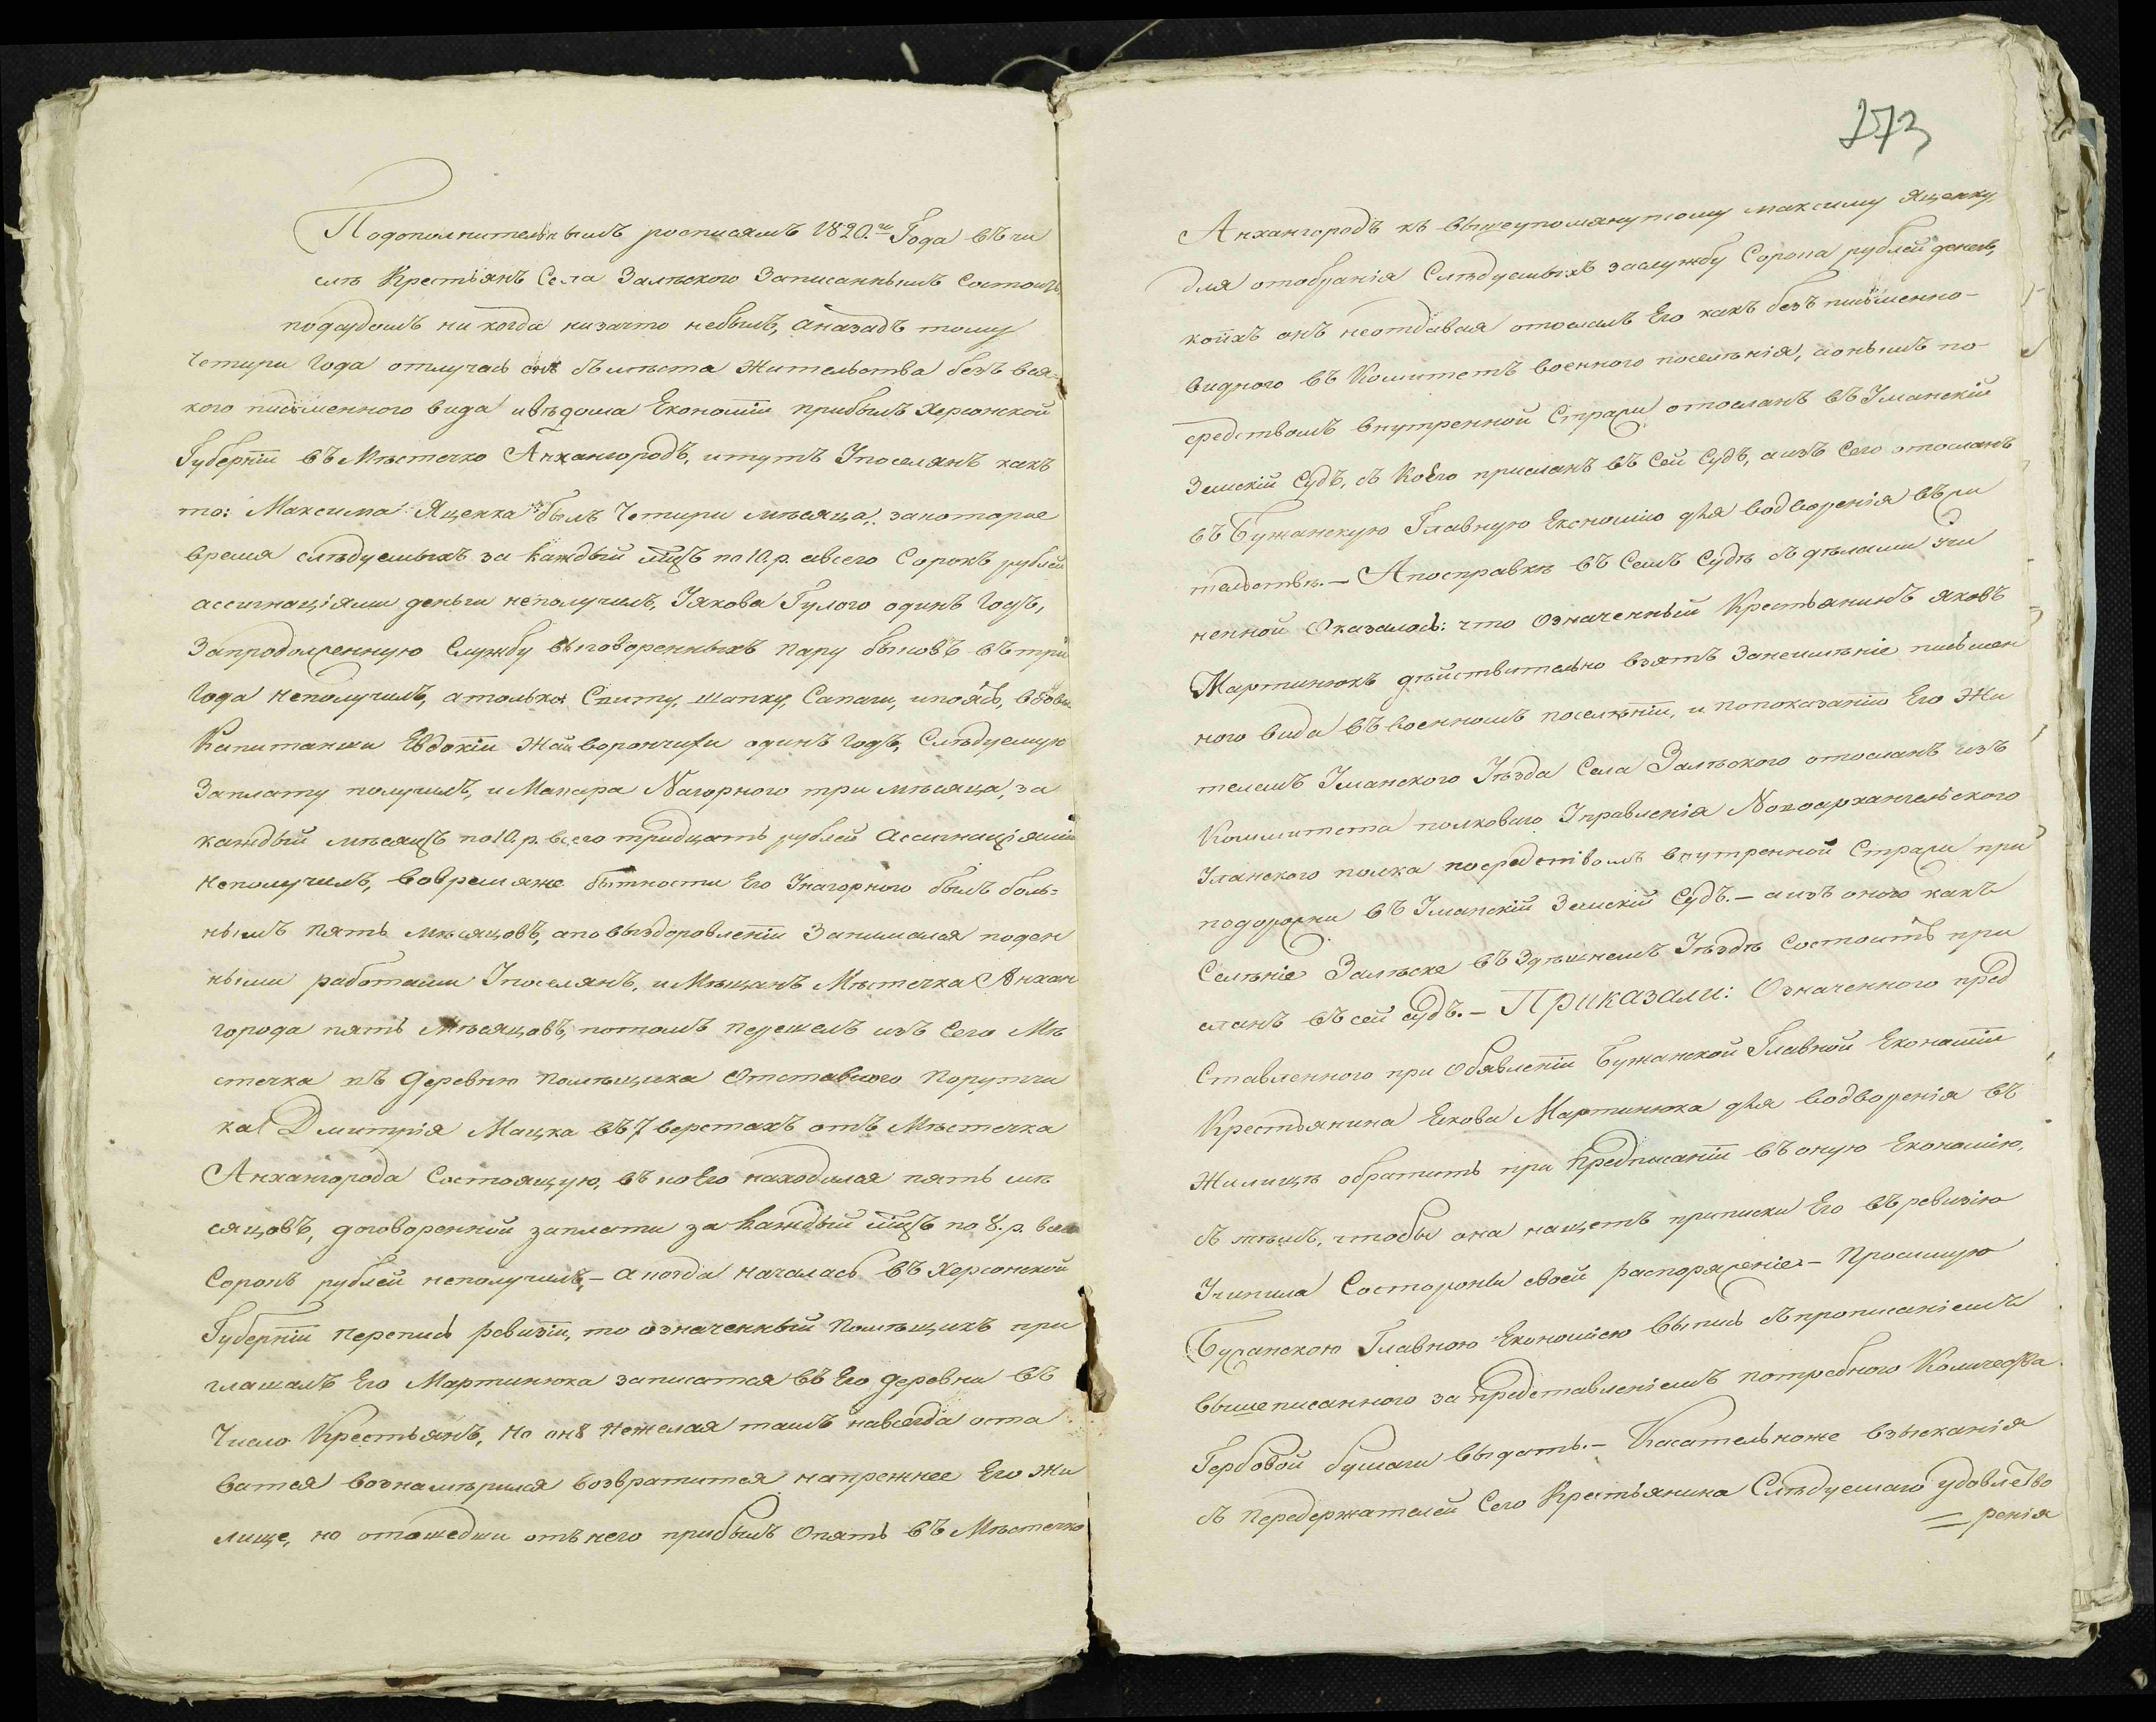 Подополнительнымъ росписямъ 1820.го Года въ чи
слѣ Крестьянъ Села Залѣского Записаннымъ Состоитъ
подсудомъ ни когда низачто небылъ, аназадъ тому
Четыри Года отлучась онъ съ мѣста Жительства безъ вся-
кого письменного вида ивѣдома Економіи прибылъ Херсонской
Губерніи въ Мѣстечко Анхангородъ, итутъ Упоселянъ какъ
то: Максима Яценка былъ Четыри мѣсяца, закоторые
время слѣдуемыхъ за каждый мцъ по 10. р. авсего Сорокъ рублей
ассигнаціями деньги неполучилъ, Уякова Гулого одинъ Годъ,
Запродолженную Службу выговоренныхъ пару быковъ въ три
Года неполучилъ, атолько Свиту, шапку, Сапоги, ипоясъ, вдовы
Капитанши Евдокіи Жайворончихи одинъ годъ, Слѣдуемую
Заплату получилъ, и Макара Нагорного три мѣсяца, за
каждый мѣсяцъ по 10. р. всего тридцать рублей Ассигнаціями
Неполучилъ, вовремяже бытности Его Унагорного былъ боль-
нымъ пять мѣсяцовъ, аповыздоровленіи Занимался поден
ными работами Упоселянъ, и Мѣщанъ Мѣстечка Анхан
города пять мѣсяцовъ, потомъ перешелъ изъ Сего Мѣ
стечка въ Деревню помѣщика Отставного Порутчи
ка Дмитрія Мацка въ 7 верстахъ отъ Мѣстечка
Анхангорода Состоящую, въ коего находился пять мѣ
сяцовъ, договоренной заплати за каждый мцъ по 8. р. всего
Сорокъ рублей неполучилъ, – а когда началась въ Херсонской
Губерніи перепись ревизіи, то означенный помѣщикъ при
глашалъ Его Мартинюка записатся въ Его деревни въ
Число Крестьянъ, но онъ нежелая тамъ навсегда оста
ватся вознамѣрился возвратится напрежнее Его жи
лище, но отошедши отъ него прибылъ Опять въ Мѣстечко
273
Анхангородъ къ вышеупомянутому максиму Яценку,
для отобранія Слѣдуемыхъ заслужбу Сорока рублей денегъ,
коихъ онъ неотдавая отослалъ Его какъ безъ письменно-
видного въ Комитетъ военного поселѣнія, аонымъ по-
средствомъ внутренной Стражи отосланъ въ Уманскій
Земскій Судъ, съ Коего присланъ въ Сей Судъ, аизъ Сего отосланъ
въ Бужанскую Главную Економію для водворенія въ жи
тельствѣ. – Апосправкѣ въ Семъ Судѣ съ дѣлами Учи
ненной Оказалось: что Означенный Крестьянинъ яковъ
Мартинюкъ дѣйствительно взятъ Занеимѣніе письмен
ного вида въ военномъ поселѣніи, и попоказанію Его Жи
телемъ Уманского Уѣзда Села Залѣского отосланъ изъ
Коммитета полкового Управленія Новоархангельского
Уланского полка посредствомъ внутренной Стражи при
подорожни въ Уманскій Земскій Судъ. – аизъ оного какъ
Селѣніе Залѣске въ Здѣшнемъ Уѣздѣ Состоитъ при
сланъ въ сей судъ. – Приказали: Означенного пред
Ставленного при Обявленіи Бужанской Главной Економіи
Крестьянина Якова Мартинюка для водворенія въ
Жилищѣ обратить при предписаніи въ оную Економію,
съ тѣмъ, чтобы она нащетъ приписки Его въ ревизію
Учинила Состороны своей распоряженіе – Просимую
Бужанскою Главною Економіею выпись съ прописаніемъ
вышеписанного за представленіемъ потребного Количества
Гербовой бумаги выдать. – Касательноже взысканія
съ передержателей Сего Крестьянина Слѣдуемаго удовлетво
= ренія